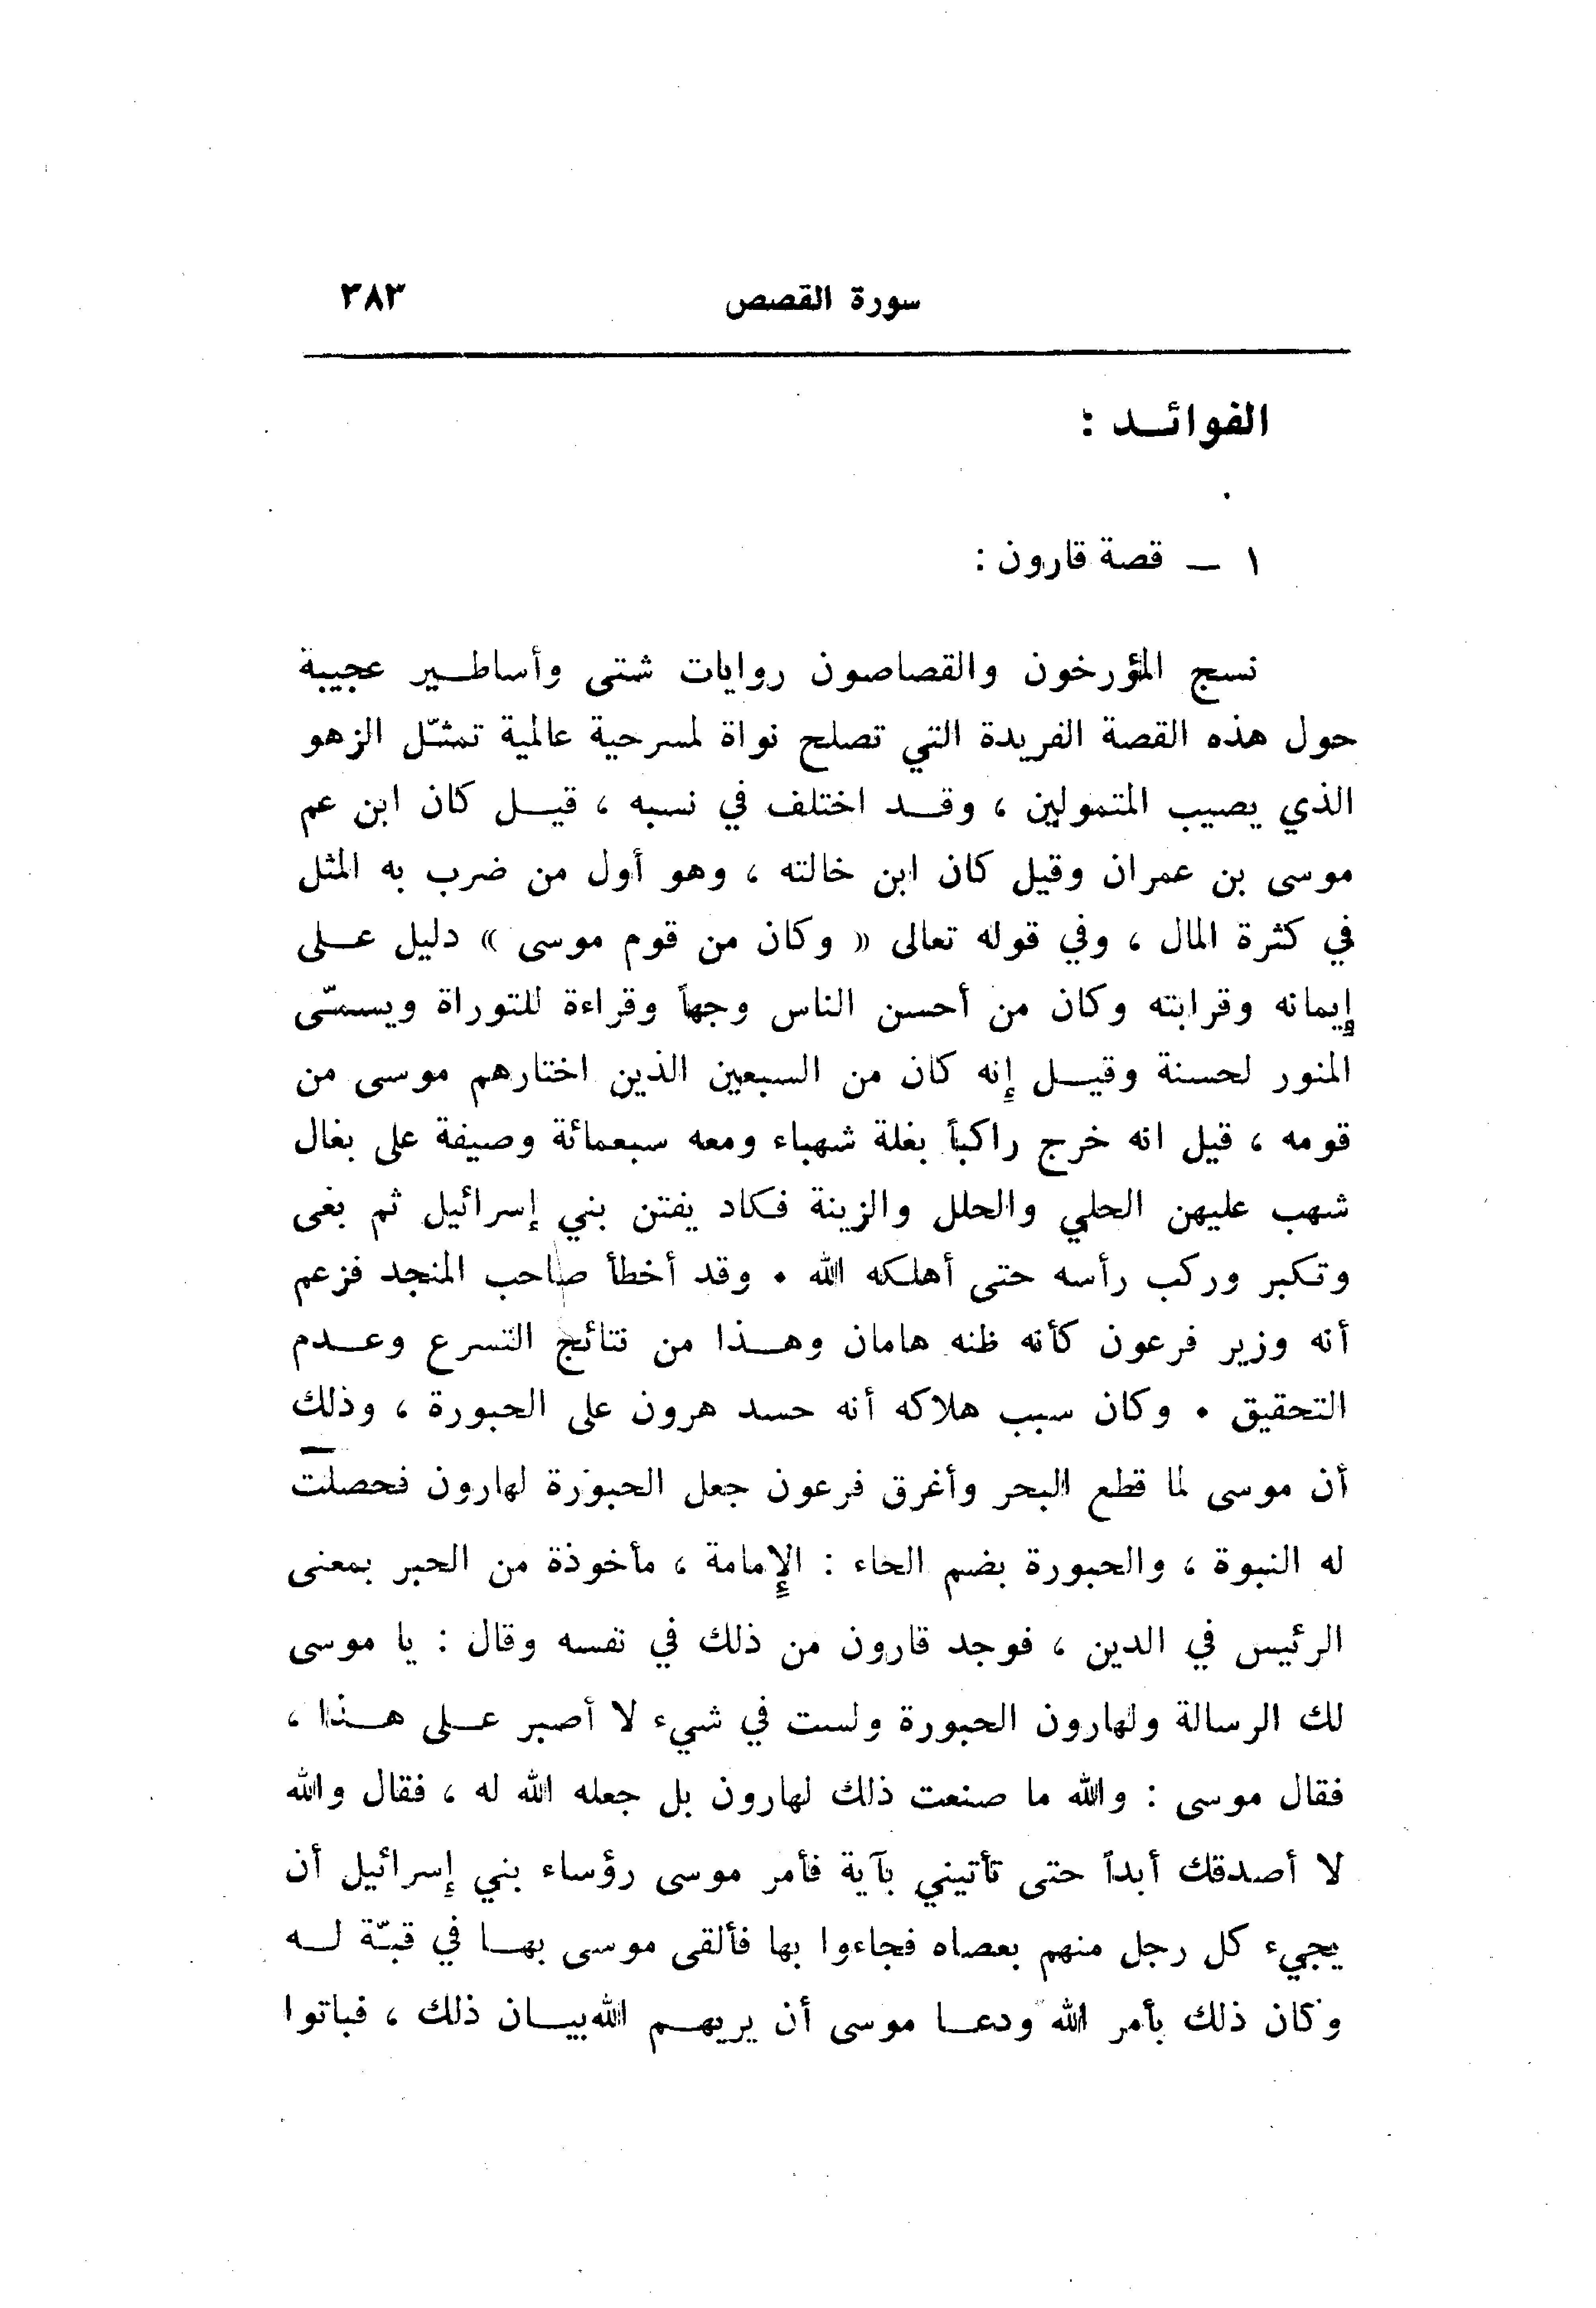 سورة القصص ٣٨٣
الفوائد :
١ – قصة قارون :
نسج المؤرخون والقصاصون روايات شتى وأساطير عجيبة
حول هذه القصة الفريدة التي تصلح نواة لمسرحية عالمية تمثّل الزهو
الذي يصيب المتمولين ، وقد اختلف في نسبه ، قيل كان ابن عم
موسى بن عمران وقيل كان ابن خالته ، وهو أول من ضرب به المثل
في كثرة المال ، وفي قوله تعالى « وكان من قوم موسى » دليل على
إيمانه وقرابته وكان من أحسن الناس وجهاً وقراءة للتوراة ويسمّى
المنور لحسنة وقيل إنه كان من السبعين الذين اختارهم موسى من
قومه ، قيل انه خرج راكباً بغلة شهباء ومعه سبعمائة وصيفة على بغال
شهب عليهن الحلي والحلل والزينة فكاد يفتن بني إسرائيل ثم بغى
وتكبر وركب رأسه حتى أهلكه الله . وقد أخطأ صاحب المنجد فزعم
أنه وزير فرعون كأنه ظنه هامان وهذا من نتائج التسرع وعدم
التحقيق . وكان سبب هلاكه أنه حسد هرون على الحبورة ، وذلك
أن موسى لما قطع البحر وأغرق فرعون جعل الحبورة لهارون فحصلت
له النبوة ، والحبورة بضم الحاء : الإمامة ، مأخوذة من الحبر بمعنى
الرئيس في الدين ، فوجد قارون من ذلك في نفسه وقال : يا موسى
لك الرسالة ولهارون الحبورة ولست في شيء لا أصبر على هذا ،
فقال موسى : والله ما صنعت ذلك لهارون بل جعله الله له ، فقال والله
لا أصدقك أبداً حتى تأتيني بآية فأمر موسى رؤساء بني إسرائيل أن
يجيء كل رجل منهم بعصاه فجاءوا بها فألقى موسى بها في قبّة له
وكان ذلك بأمر الله ودعا موسى أن يريهم الله بيان ذلك ، فباتوا